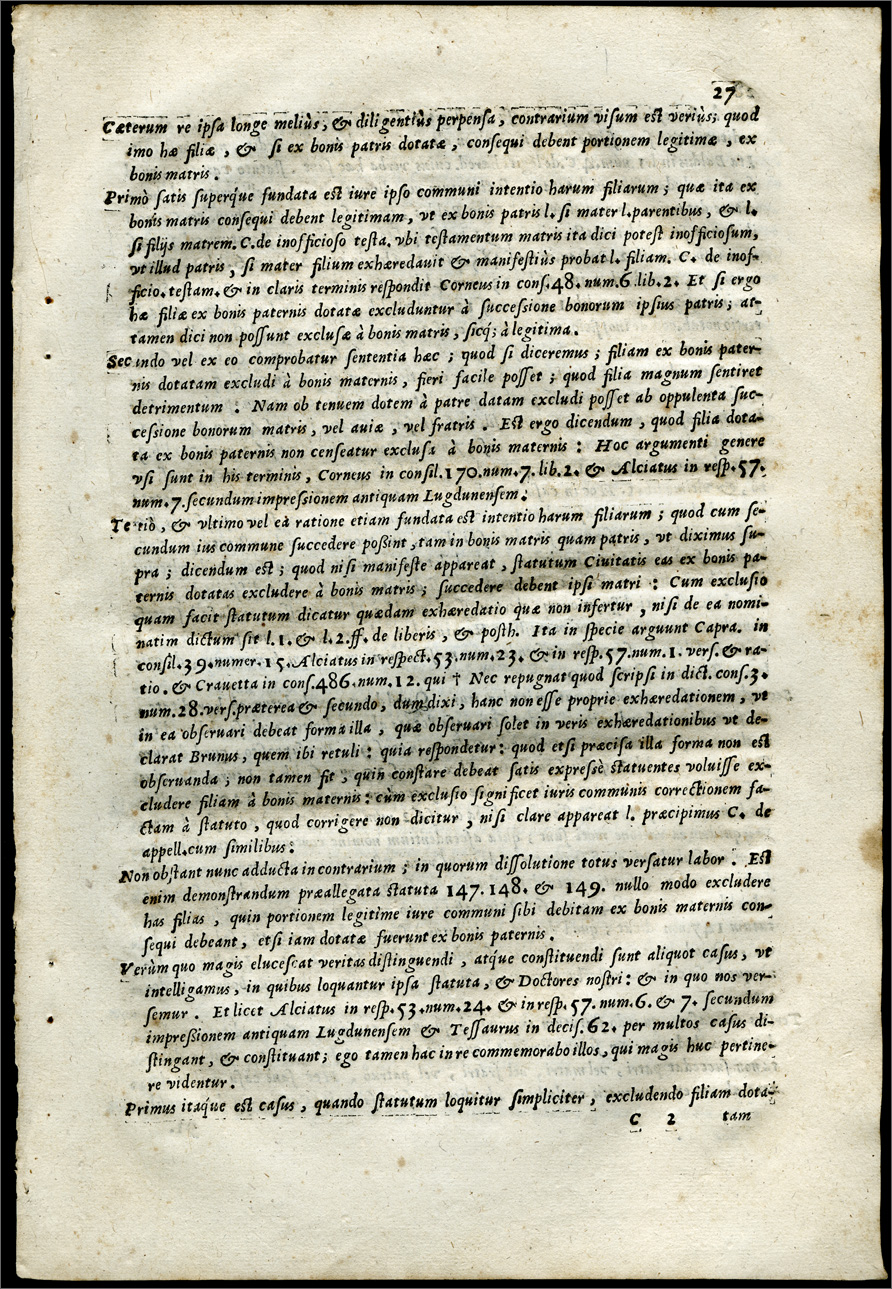 27
Cæterum re ipsa longe meliùs, & diligentiùs perpensa, contrarium visum est veriùs; quod
imo hæ filiæ, & si ex bonis patris dotatæ, consequi debent portionem legitimæ, ex
bonis matris.
Primò satis superq́ue fundata est iure ipso communi intentio harum filiarum; quæ ita ex
bonis matris consequi debent legitimam, vt ex bonis patris l. si mater l. parentibus, & l.
si filijs matrem. C. de inofficioso testa. vbi testamentum matris ita dici potest inofficiosum,
vt illud patris, si mater filium exhæredauit & manifestiùs probat l. filiam. C. de inof-
ficio. testam. & in claris terminis respondit Corneus in cons. 48. num. 6. lib. 2. Et si ergo
hæ filiæ ex bonis paternis dotatæ excluduntur à successione bonorum ipsius patris; at-
tamen dici non possunt exclusæ à bonis matris, sicq́; à legitima.
Secundo vel ex eo comprobatur sententia hæc; quod si diceremus; filiam ex bonis pater-
nis dotatam excludi à bonis maternis, fieri facile posset; quod filia magnum sentiret
detrimentum: Nam ob tenuem dotem à patre datam excludi posset ab opulenta suc-
cessione bonorum matris, vel auiæ, vel fratris. Est ergo dicendum, quod filia dota-
ta ex bonis paternis non censeatur exclusa à bonis maternis: Hoc argumenti genere
vsi sunt in his terminis, Corneus in consil. 170. num. 7. lib. 2. & Alciatus in resp. 57.
num. 7. secundum impressionem antiquam Lugdunensem.
Tertiò, & vltimo vel ea ratione etiam fundata est intentio harum filiarum; quod cum se-
cundum ius commune succedere possint, tam in bonis matris quam patris, vt diximus su-
pra; dicendum est; quod nisi manifeste appareat, statutum Ciuitatis eas ex bonis pa-
ternis dotatas excludere à bonis matris; succedere debent ipsi matri: Cum exclusio
quam facit statutum dicatur quædam exhæredatio quæ non infertur, nisi de ea nomi-
natim dictum sit l. 1. & l. 2. ff. de liberis, & posth. Ita in specie arguunt Capra. in
consil. 39. numer. 15. Alciatus in respect. 53. num. 23. & in resp. 57. num. 1. vers. & ra-
tio. & Crauetta in cons. 486. num. 12. qui † Nec repugnat quod scripsi in dict. cons. 3.
num. 28. vers. præterea & secundo, dum dixi, hanc non esse proprie exhæredationem, vt
in ea obseruari debeat forma illa, quæ obseruari solet in veris exhæredationibus vt de-
clarat Brunus, quem ibi retuli: quia respondetur: quod etsi præcisa illa forma non est
obseruanda; non tamen fit, quin constare debeat satis expressè statuentes voluisse ex-
cludere filiam à bonis maternis: cùm exclusio significet iuris communis correctionem fa-
ctam à statuto, quod corrigere non dicitur, nisi clare appareat l. præcipimus C. de
appell. cum similibus:
Non obstant nunc adducta in contrarium; in quorum dissolutione totus versatur labor. Est
enim demonstrandum præallegata statuta 147. 148. & 149. nullo modo excludere
has filias, quin portionem legitime iure communi sibi debitam ex bonis maternis con-
sequi debeant, etsi iam dotatæ fuerunt ex bonis paternis.
Verùm quo magis elucescat veritas distinguendi, atq́ue constituendi sunt aliquot casus, vt
intelligamus, in quibus loquantur ipsa statuta, & Doctores nostri: & in quo nos ver-
semur. Et licet Alciatus in resp. 53. num. 24. & in resp. 57. num. 6. & 7. secundum
impressionem antiquam Lugdunensem & Tessaurus in decis. 62. per multos casus di-
stingant, & constituant; ego tamen hac in re commemorabo illos, qui magis huc pertine-
re videntur.
Primus itaq́ue est casus, quando statutum loquitur simpliciter, excludendo filiam dota-
C 2 tam